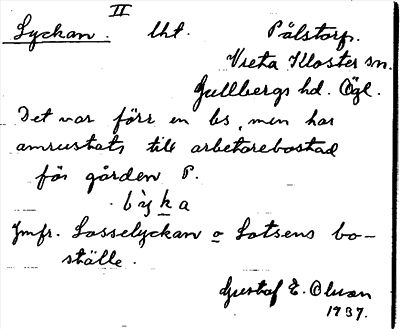 II
Lyckan. lht. Pålstorp.
Vreta Kloster sn.
Gullbergs hd. Ögl.
Det var förr en bs, men har
omrustats till arbetarebostad
för gården P.
lyka
Jmfr. Lasselyckan o Lotsens bo-
ställe.
Gustaf E. Olsson
1937.